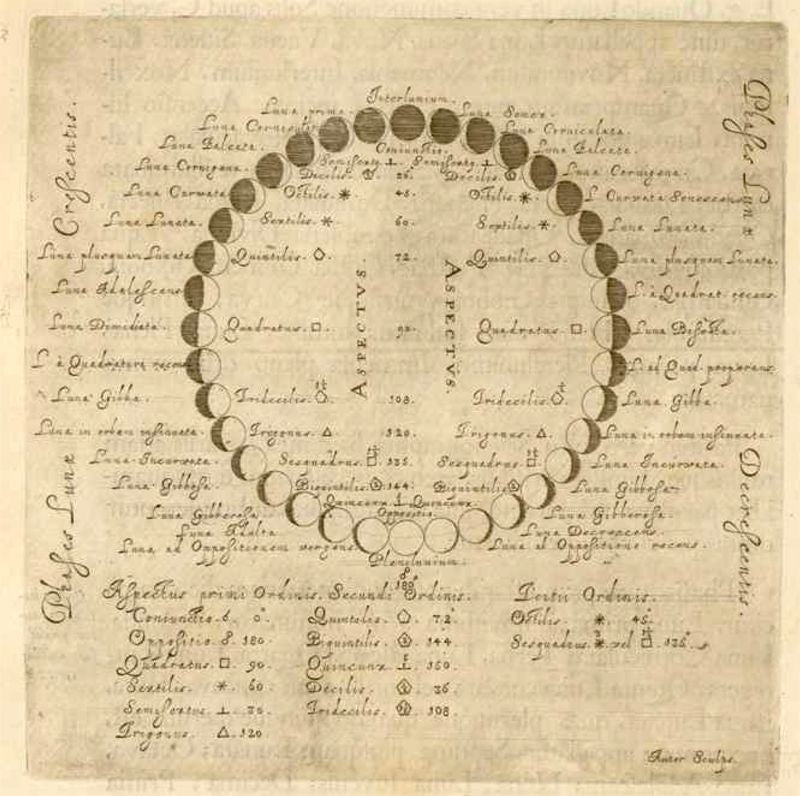 Interlunium.
Luna prima.
Luna Senex.
Luna Corniculata.
Luna Corniculata.
Luna Falcata.
Luna Falcata.
Coniunctio.
Semisextq. ⊥ Semisextq. ⊥
Luna Cornigera.
Decilis. 36. Decilis.
Luna Cornigera.
Luna Curvata
Octilis. * 45. Octilis. *
L. Curvata Senescens
Luna Lunata.
Sextilis. * 60. Sextilis. *
Luna Lunata.
Luna plusquam Lunata
Quintilis. 72. Quintilis.
Luna plusquam Lunata.
Luna Adolescens
L. à Quadrat. recens.
Luna Dimidiata.
Quadratus. □ 90. Quadratus. □
L. à Quadratura recens
L. ad Quad. properans.
Luna Gibba.
Tridecilis. 108. Tridecilis.
Luna Gibba.
Luna in orbem insinuata.
Trigonus. △ 120. Trigonus. △
Luna in orbem insinuata.
Luna Incurvata.
Sesquadrus. 135. Sesquadrus.
Luna Incurvata.
Luna Gibbosa.
Biquintilis 144. Biquintilis
Luna Gibbosa
Quincunx Quincunx
Luna Gibberosa.
Oppositio.
Luna Gibberosa.
Luna Adulta
Luna Decrescens.
Luna ad Oppositionem vergens
Luna ab Oppositione recens.
Plenilunium.
☍
180
Phases Lunæ Crescentis.
ASPECTVS.
ASPECTVS.
Phases Lunæ Decrescentis.
Aspectus primi Ordinis. Secundi Ordinis. Tertii Ordinis.
Coniunctio. ☌ 0° Quintilis. 72° Octilis. * 45°
Oppositio ☍ 180 Biquintilis. 144. Sesquadrus. vel 135°
Quadratus. □ 90. Quincunx. 150.
Sextilis. * 60. Decilis. 36
Semisextus. ⊥ 30. Tridecilis. 108.
Trigonus. △ 120.
Autor Sculps.